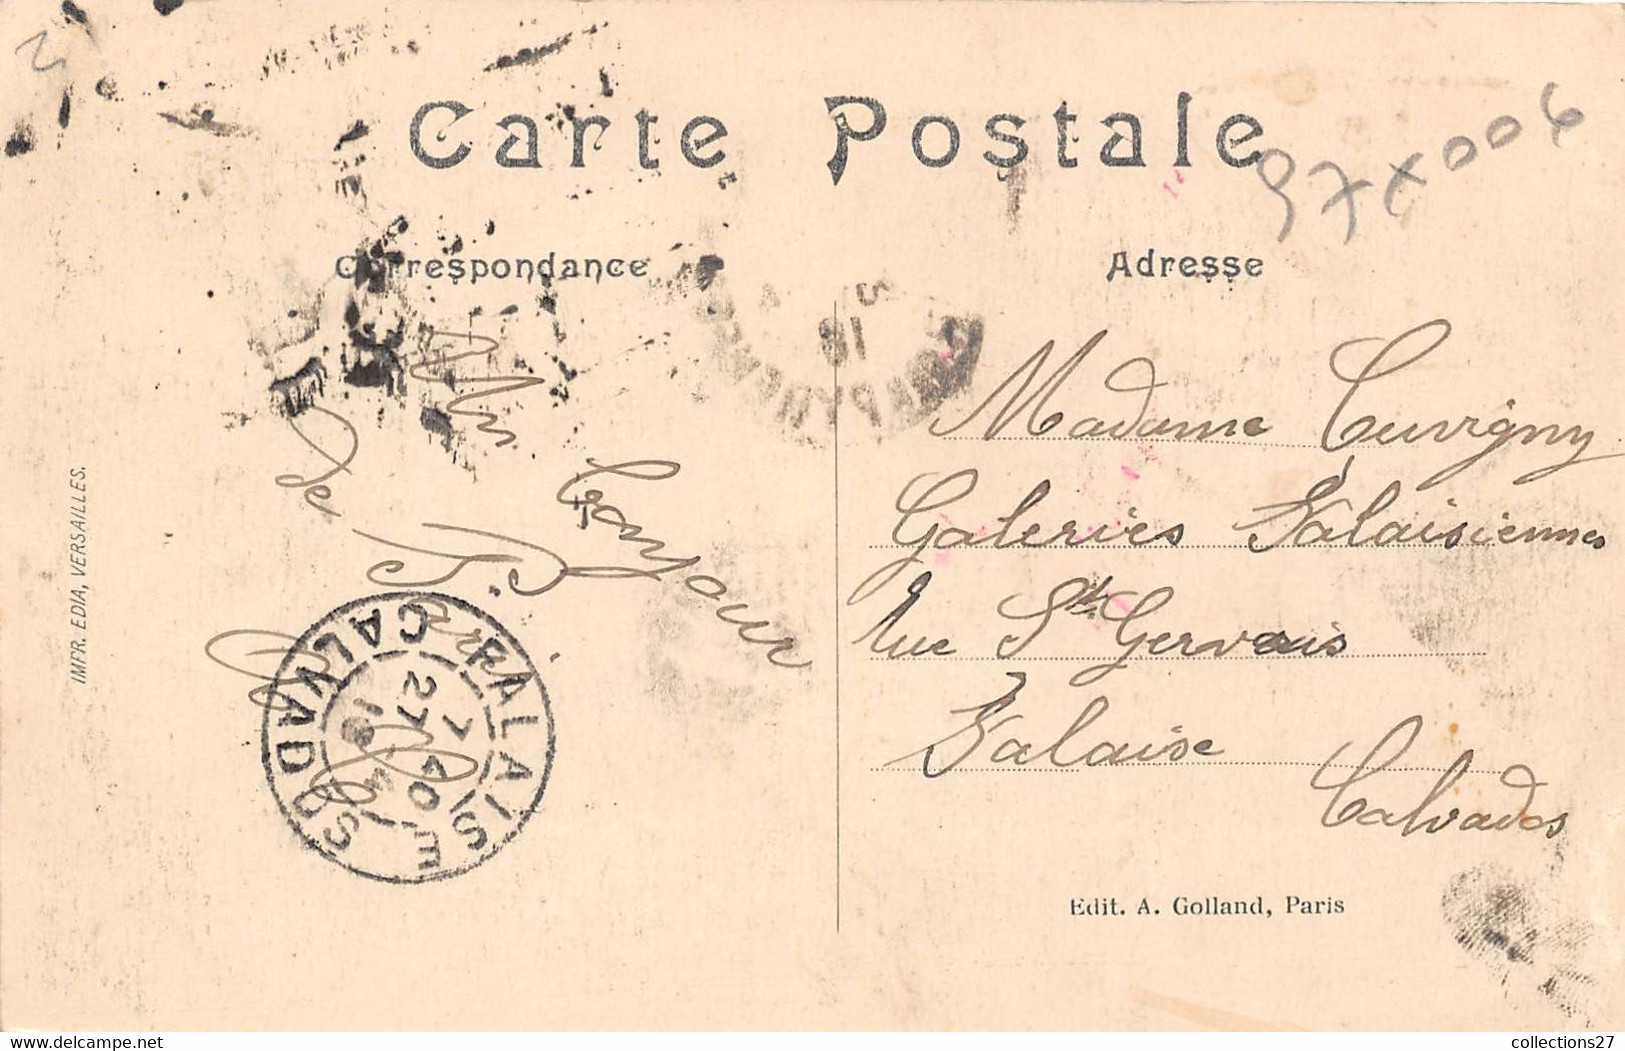 Carte Postale
97X006
Correspondance
Adresse
Un
bonjour
de Paris
Madame Cuvigny
Galeries Falaisiennes
rue St Gervais
Falaise
Calvados
FALAISE
CALVADOS
18
27
7 40
Edit. A. Golland, Paris
IMPR. EDIA, VERSAILLES.
collections27